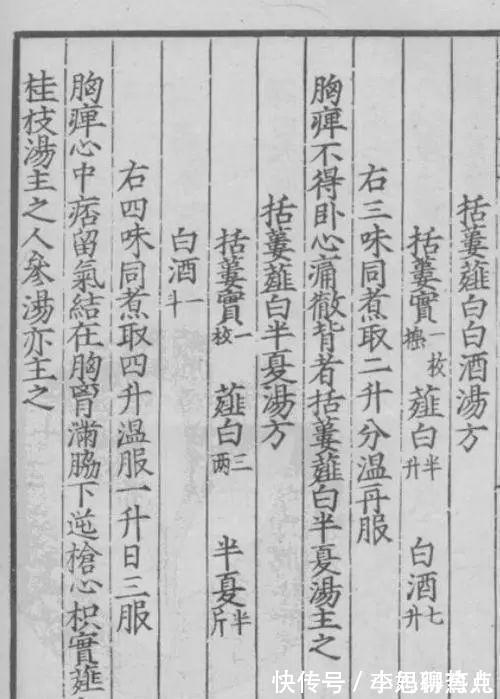 括蔞薤白白酒湯方
括蔞實一枚擣 薤白半升 白酒七升
右三味同煮取二升分温再服
胸痺不得卧心痛徹背者括蔞薤白半夏湯主之
括蔞薤白半夏湯方
括蔞實一枚 薤白三兩 半夏半斤
白酒一斗
右四味同煮取四升温服一升日三服
胸痺心中痞留氣結在胸胷滿脇下逆槍心枳實薤
桂枝湯主之人參湯亦主之
快传号/李旭聊